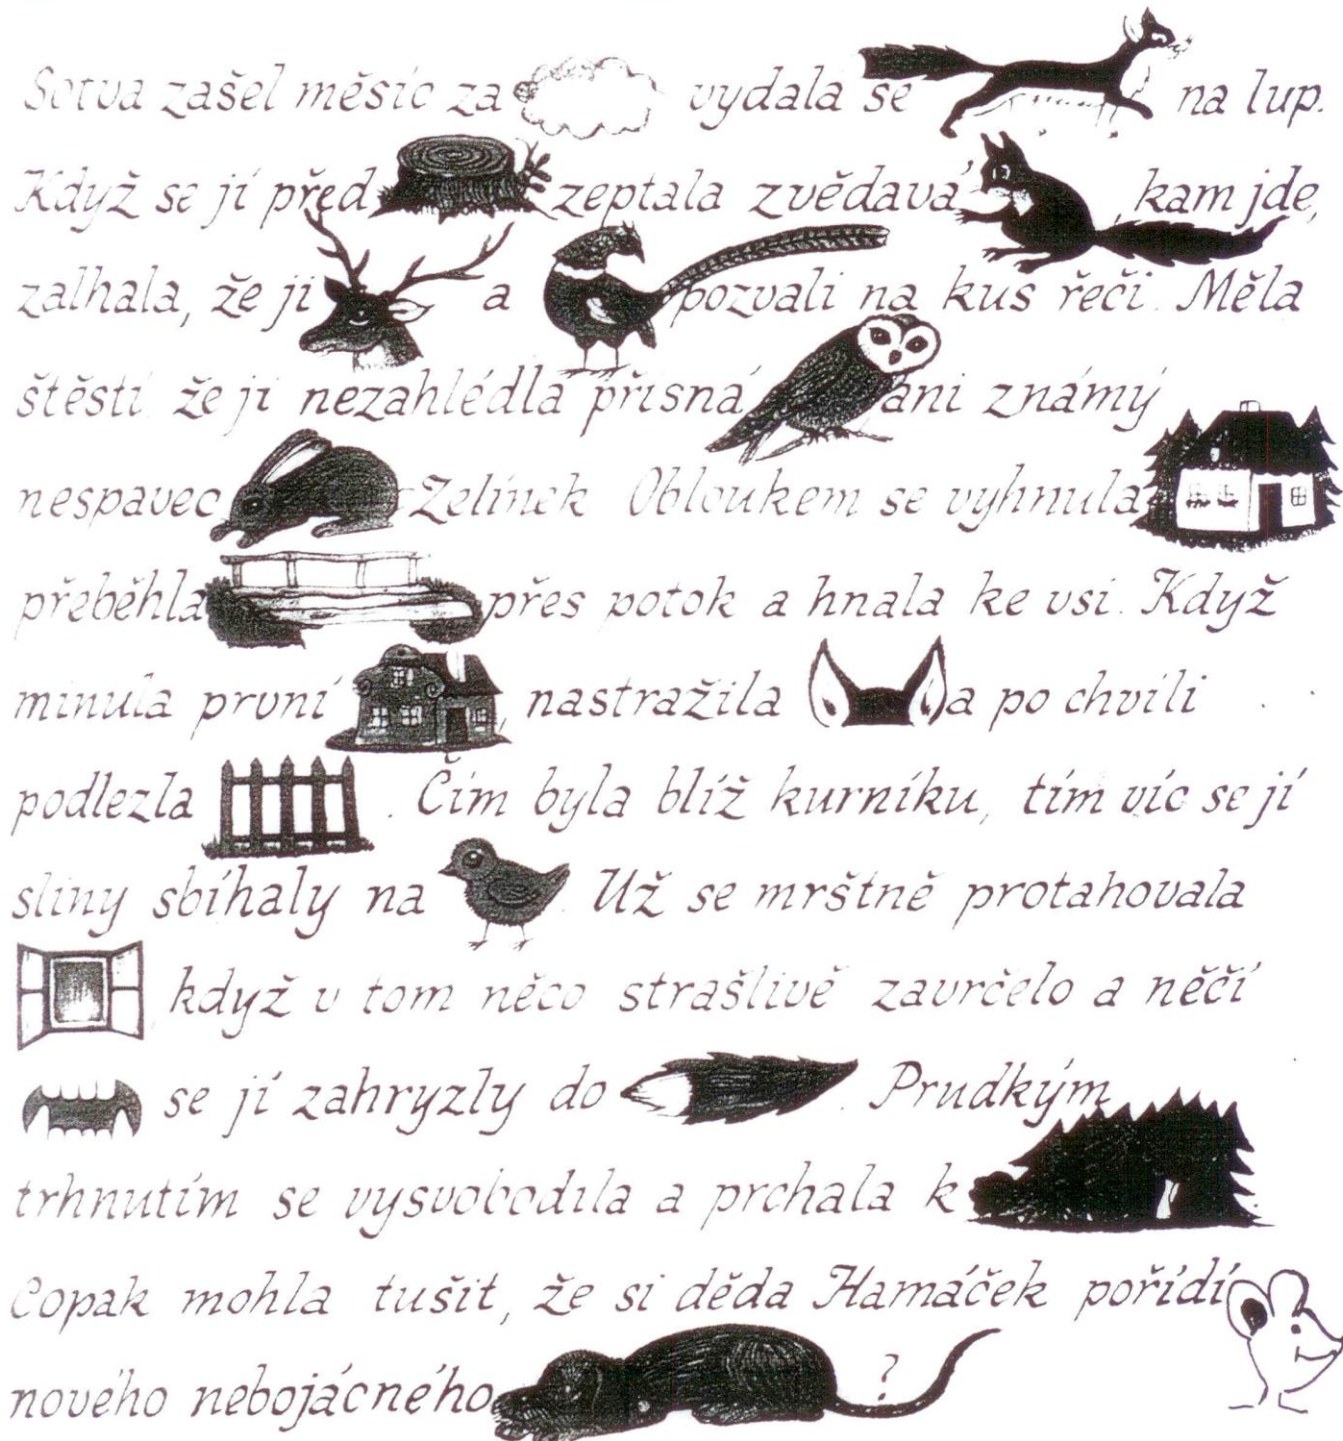 Sotva zašel měsíc za vydala se na lup.
Když se jí před zeptala zvědavá , kam jde,
zalhala, že ji a pozvali na kus řeči. Měla
štěstí že ji nezahlédla přísná ani známý
nespavec Zelínek Obloukem se vyhnula
přeběhla přes potok a hnala ke vsi. Když
minula první , nastražila a po chvíli
podlezla . Čím byla blíž kurníku, tím víc se jí
sliny sbíhaly na . Už se mrštně protahovala
, když v tom něco strašlivě zavrčelo a něčí
se jí zahryzly do . Prudkým
trhnutím se vysvobodila a prchala k
Copak mohla tušit, že si děda Hamáček pořídí
nového nebojácného ?